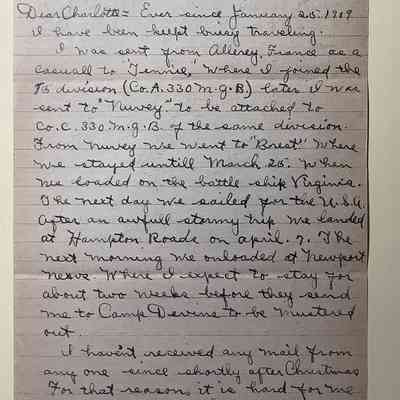 Dear Charlotte= Ever since January 25. 1919
I have been keept busy traveling.
I was sent from Allerey, France as a
casual to "Tennie," Where I joined the
85 division (Co. A. 330 M.G.B) later I was
sent to "Nuvey" to be attached to
Co. C. 330 M.G.B. of the same division.
From Nuvey we went to "Brest" Where
we stayed untill March 25. When
we loaded on the battle ship Virginia.
The next day we sailed for the U.S.A.
After an awfull stormy trip we landed
at Hampton Roads on april. 7. The
next morning we onloaded at Newport
News. Where I expect to stay for
about two weeks before they send
me to Camp Devins to be mustered
out.
I havent received any mail from
any one since shortly after Christmas
For that reason it is hard for me